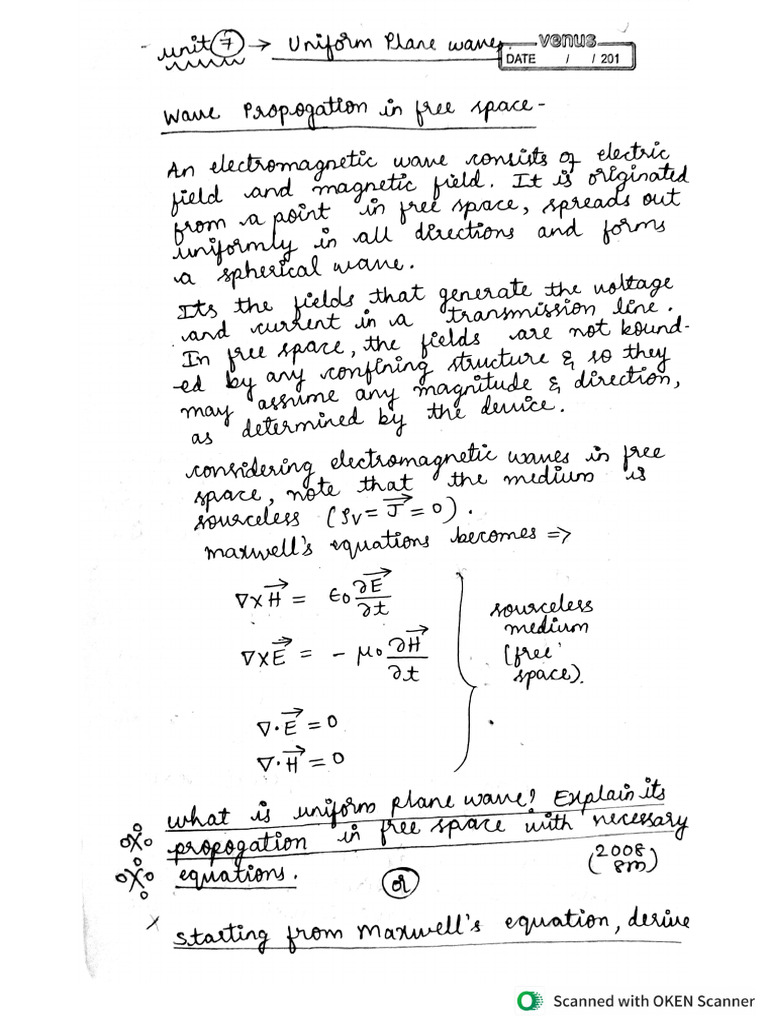 - Unit 7 → Uniform Plane waves
venus
DATE / / 201
Wave Propogation in free space -
An electromagnetic wave consists of electric
field and magnetic field. It is originated
from a point in free space, spreads out
uniformly in all directions and forms
a spherical wave.
Its the fields that generate the voltage
and current in a transmission line.
In free space, the fields are not bound-
ed by any confining structure & so they
may assume any magnitude & direction,
as determined by the device.
considering electromagnetic waves in free
space, note that the medium is
sourceless (ρv = J⃗ = 0).
maxwell's equations becomes ⇒
∇×H⃗ = ε0 ∂E⃗/∂t
∇×E⃗ = - μ0 ∂H⃗/∂t
∇·E⃗ = 0
∇·H⃗ = 0
sourceless
medium
(free
space).
what is uniform plane wave? Explain its
propogation in free space with necessary
equations. (2008 8m)
or
Starting from Maxwell's equation, derive
Scanned with OKEN Scanner